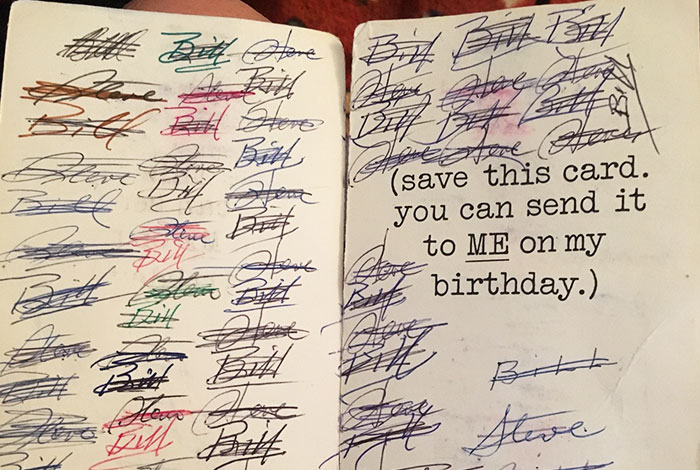 Bill Bill Steve
Steve Steve Bill
Bill Bill Steve
Steve Steve Bill
Bill Bill Steve
Steve Steve Bill
Bill Steve
Bill Steve Bill
Steve Bill Steve
Bill Steve Bill
Steve Bill Steve
Steve Bill
Bill Bill
Bill Bill Bill
Steve Steve Steve
Bill Bill Bill
Bill
Steve Steve Steve
(save this card.
you can send it
to ME on my
birthday.)
Steve
Bill
Steve
Bill
Bill
Steve
Bill
Steve